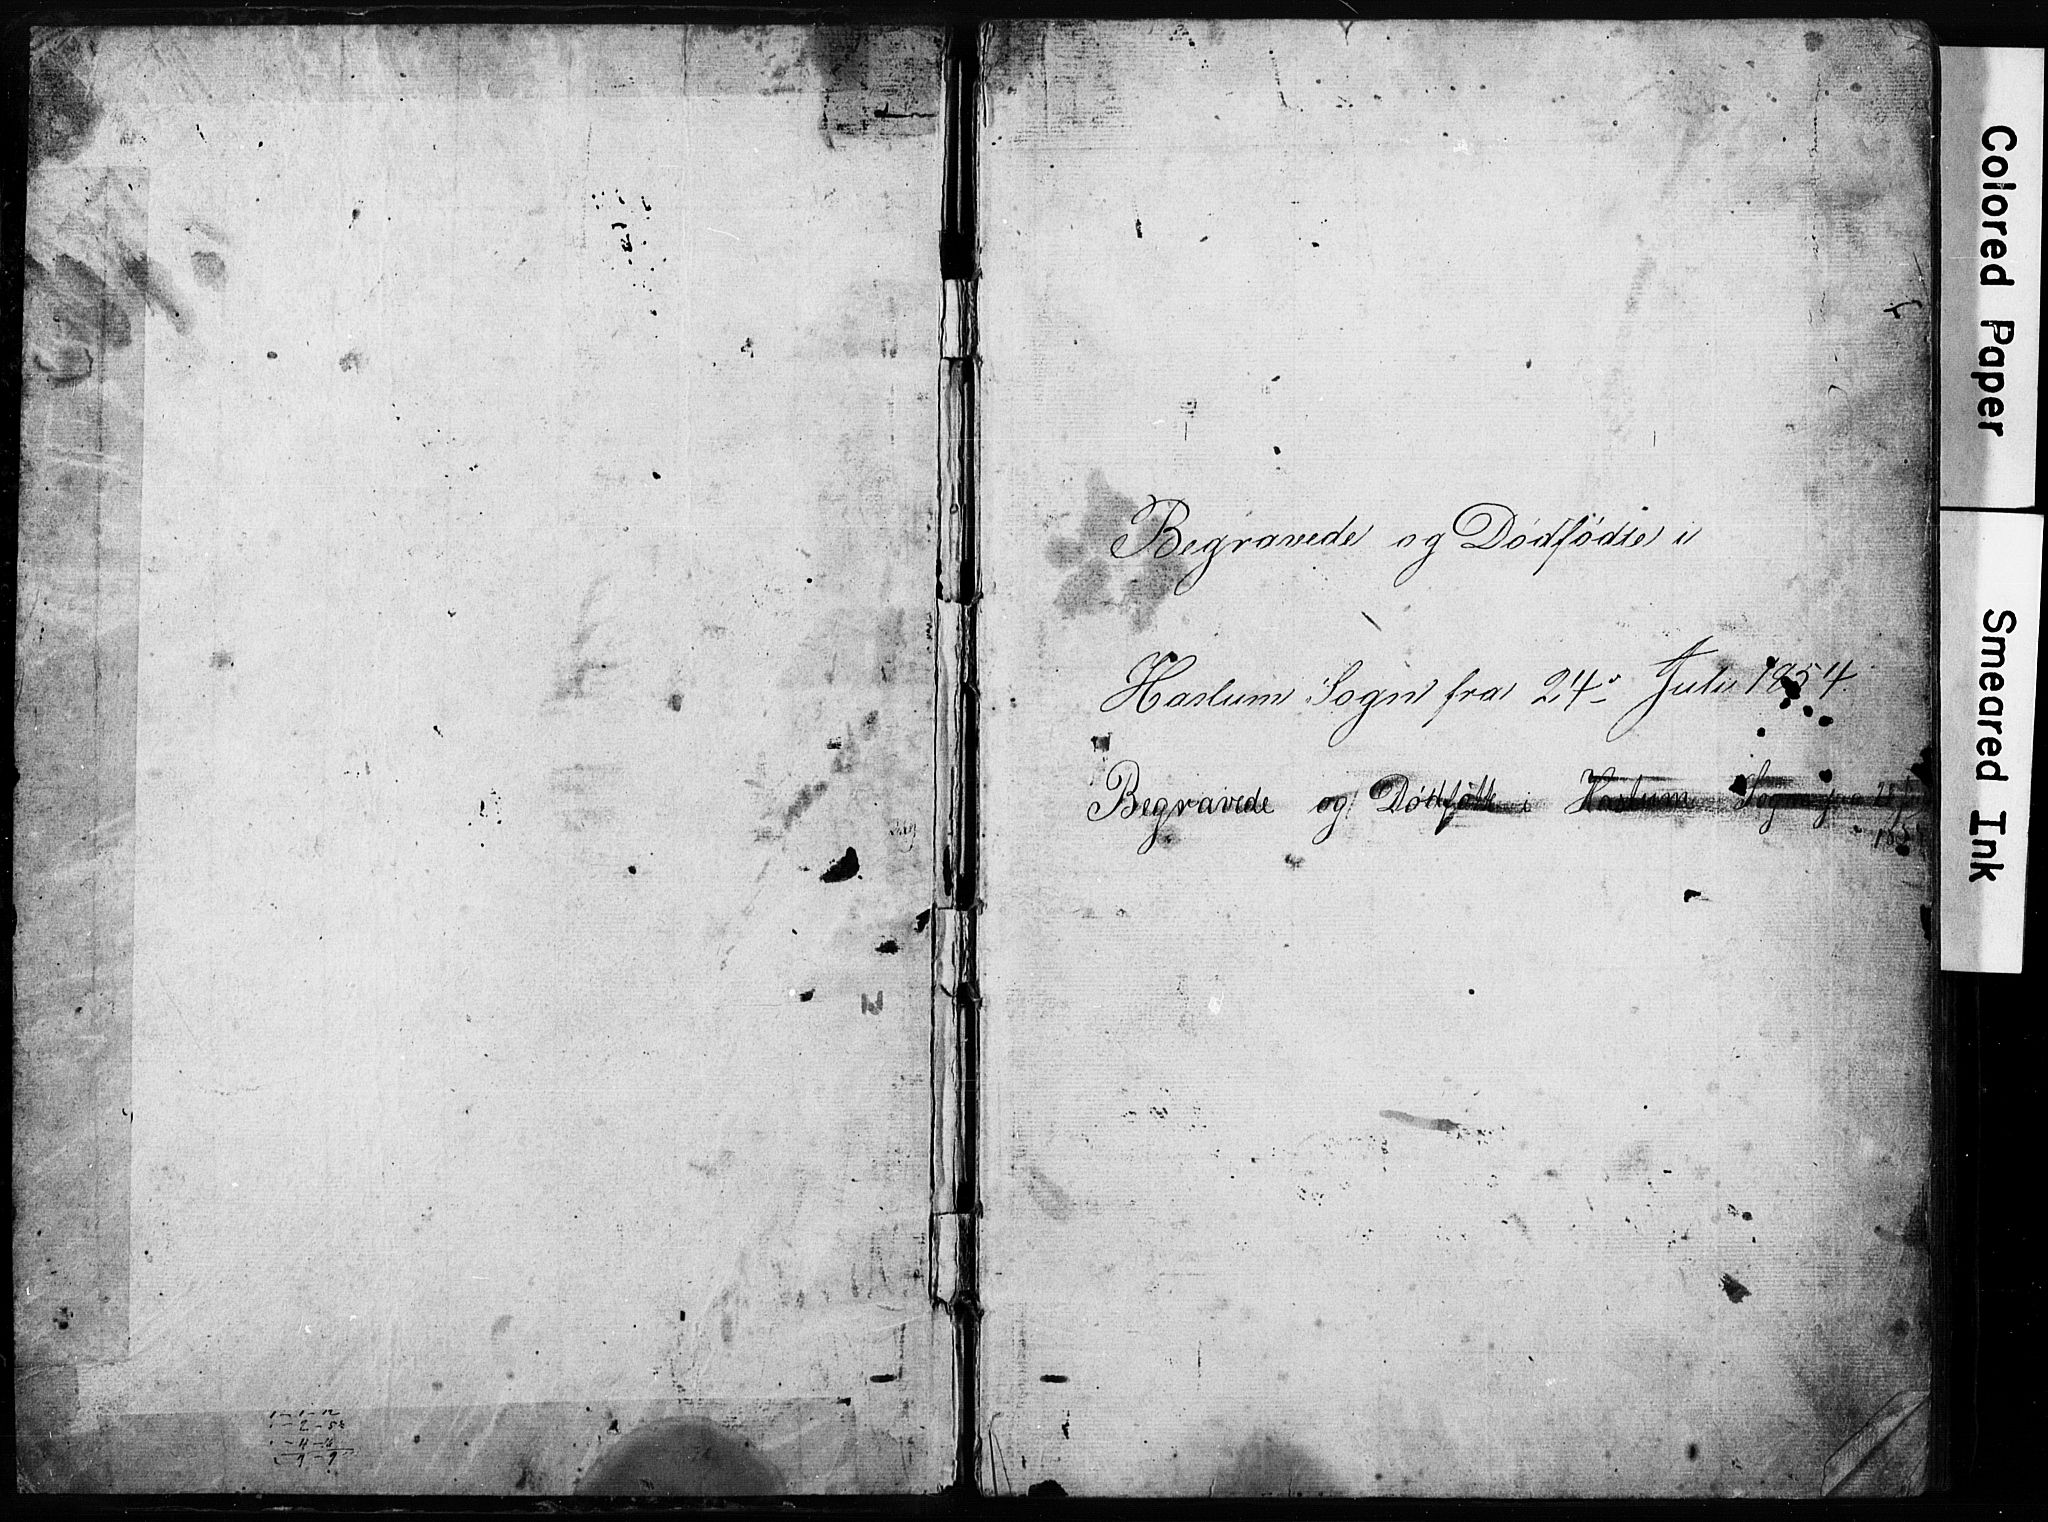 Begravede og Dødfødte i
Haslum Sogn fra 24. Juli 1854.
Begravede og Dødfødte i Haslum Sogn fra
Colored Paper
Smeared Ink